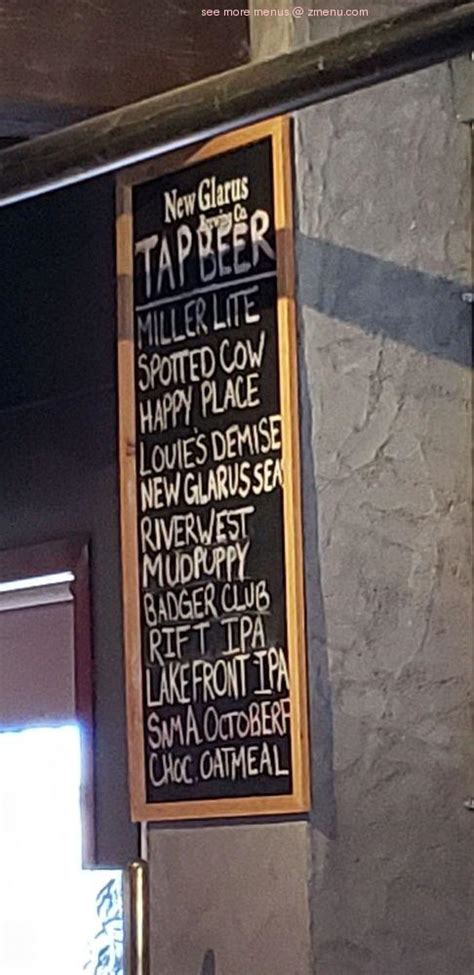 see more menus @ zmenu.com
New Glarus
Brewing Co.
TAP BEER
MILLER LITE
SPOTTED COW
HAPPY PLACE
LOUIE'S DEMISE
NEW GLARUS SEA
RIVERWEST
MUDPUPPY
BADGER CLUB
RIFT IPA
LAKEFRONT IPA
SAM A OCTOBERF
CHOC. OATMEAL